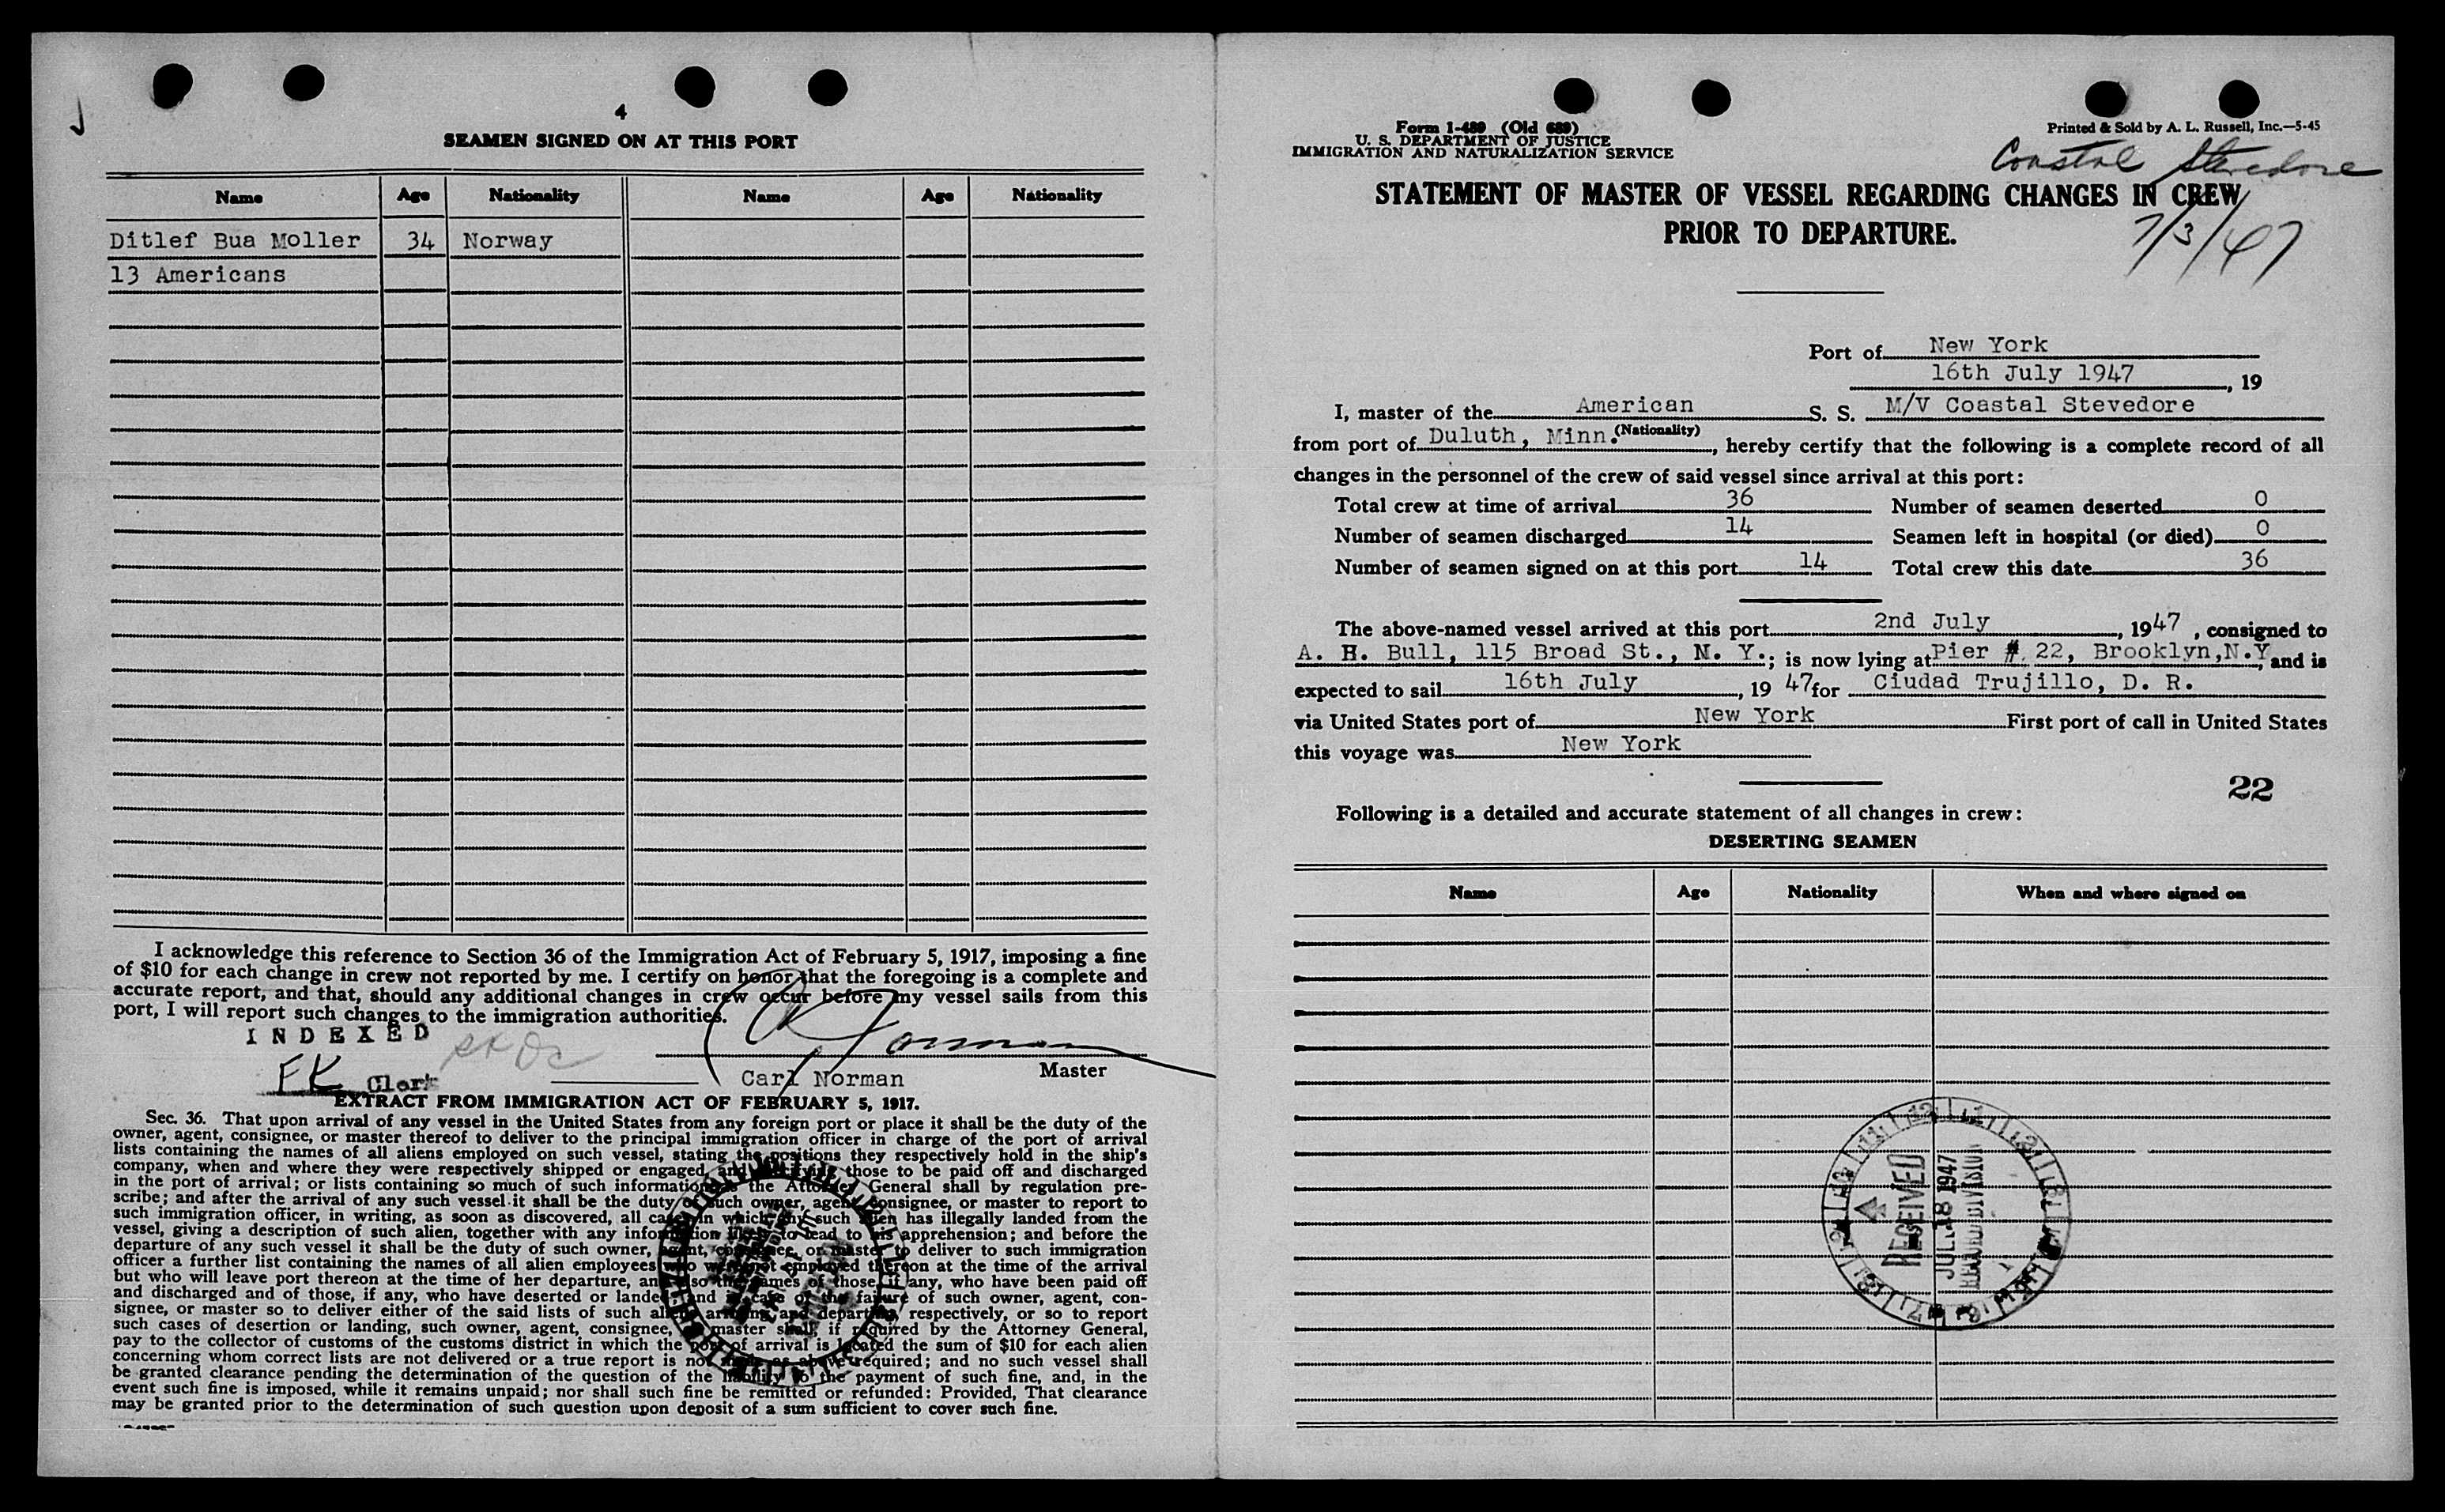 4
SEAMEN SIGNED ON AT THIS PORT
Name Age Nationality Name Age Nationality
Ditlef Bua Moller 34 Norway
13 Americans
I acknowledge this reference to Section 36 of the Immigration Act of February 5, 1917, imposing a fine
of $10 for each change in crew not reported by me. I certify on honor that the foregoing is a complete and
accurate report, and that, should any additional changes in crew occur before my vessel sails from this
port, I will report such changes to the immigration authorities.
INDEXED
FK Clerk
Carl Norman Master
EXTRACT FROM IMMIGRATION ACT OF FEBRUARY 5, 1917.
Sec. 36. That upon arrival of any vessel in the United States from any foreign port or place it shall be the duty of the
owner, agent, consignee, or master thereof to deliver to the principal immigration officer in charge of the port of arrival
lists containing the names of all aliens employed on such vessel, stating the positions they respectively hold in the ship's
company, when and where they were respectively shipped or engaged, and specifying those to be paid off and discharged
in the port of arrival; or lists containing so much of such information as the Attorney General shall by regulation pre-
scribe; and after the arrival of any such vessel it shall be the duty of such owner, agent, consignee, or master to report to
such immigration officer, in writing, as soon as discovered, all cases in which any such alien has illegally landed from the
vessel, giving a description of such alien, together with any information likely to lead to his apprehension; and before the
departure of any such vessel it shall be the duty of such owner, agent, consignee, or master to deliver to such immigration
officer a further list containing the names of all alien employees who were not employed thereon at the time of the arrival
but who will leave port thereon at the time of her departure, and also the names of those, if any, who have been paid off
and discharged and of those, if any, who have deserted or landed; and in case of the failure of such owner, agent, con-
signee, or master so to deliver either of the said lists of such aliens arriving and departing, respectively, or so to report
such cases of desertion or landing, such owner, agent, consignee, master shall, if required by the Attorney General,
pay to the collector of customs of the customs district in which the port of arrival is located the sum of $10 for each alien
concerning whom correct lists are not delivered or a true report is not made as above required; and no such vessel shall
be granted clearance pending the determination of the question of the liability to the payment of such fine, and, in the
event such fine is imposed, while it remains unpaid; nor shall such fine be remitted or refunded: Provided, That clearance
may be granted prior to the determination of such question upon deposit of a sum sufficient to cover such fine.
Form I-489 (Old 689)
U. S. DEPARTMENT OF JUSTICE
IMMIGRATION AND NATURALIZATION SERVICE
Printed & Sold by A. L. Russell, Inc.—5-45
Coastal Stevedore
STATEMENT OF MASTER OF VESSEL REGARDING CHANGES IN CREW
PRIOR TO DEPARTURE.
7/3/47
Port of New York
16th July 1947, 19
I, master of the American S. S. M/V Coastal Stevedore
(Nationality)
from port of Duluth, Minn., hereby certify that the following is a complete record of all
changes in the personnel of the crew of said vessel since arrival at this port:
Total crew at time of arrival 36 Number of seamen deserted 0
Number of seamen discharged 14 Seamen left in hospital (or died) 0
Number of seamen signed on at this port 14 Total crew this date 36
The above-named vessel arrived at this port 2nd July, 1947, consigned to
A. H. Bull, 115 Broad St., N. Y.; is now lying at Pier #. 22, Brooklyn,N.Y, and is
expected to sail 16th July, 19 47 for Ciudad Trujillo, D. R.
via United States port of New York First port of call in United States
this voyage was New York
22
Following is a detailed and accurate statement of all changes in crew:
DESERTING SEAMEN
Name Age Nationality When and where signed on
RECEIVED
JUL 18 1947
RECORD DIVISION